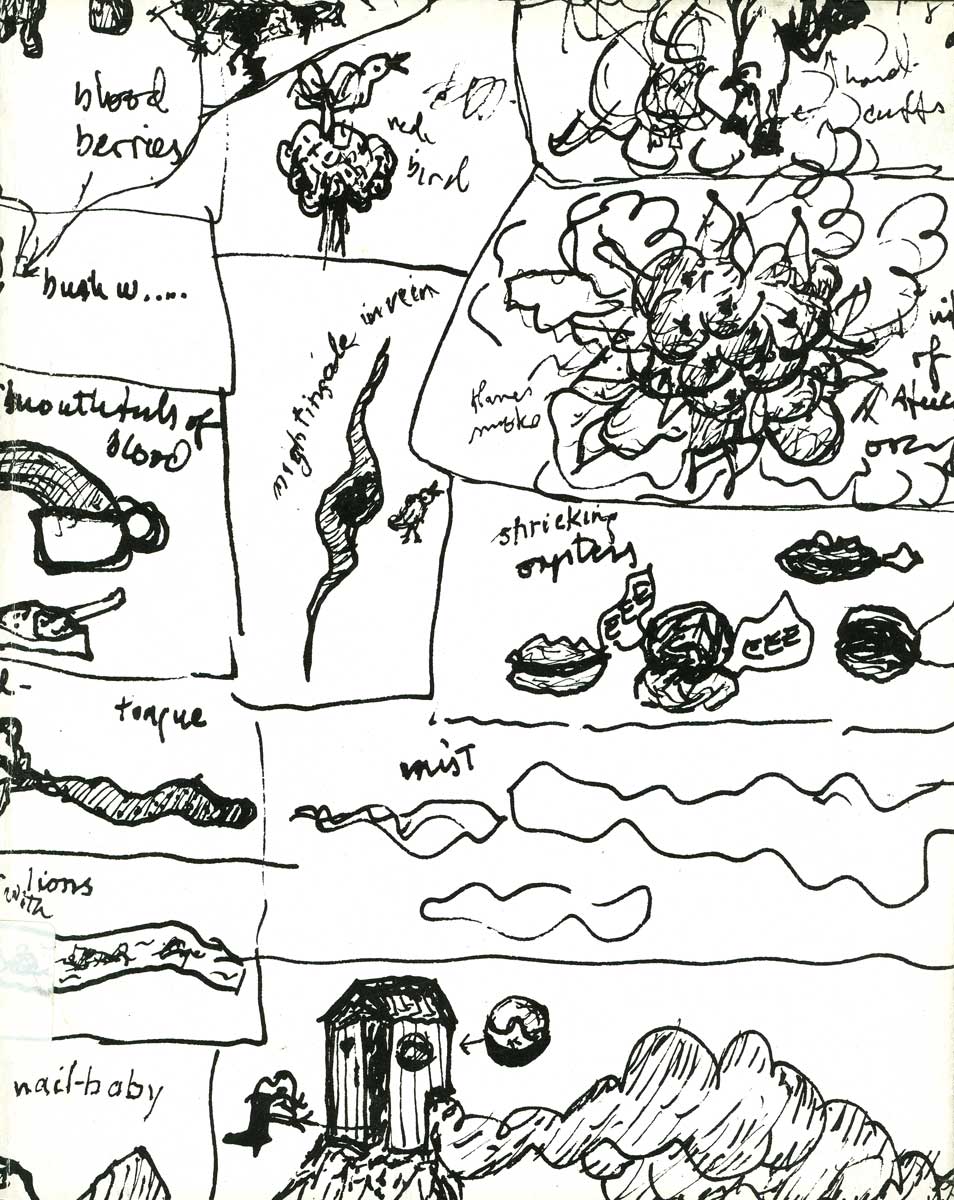 blood
berries
red
bird
hand-
cuffs
bush w.....
nightingale in rein
mouthfuls of
blood
flames
smoke
of
shricking
oysters
EEE
EEE
tongue
mist
lions
with
nail-baby